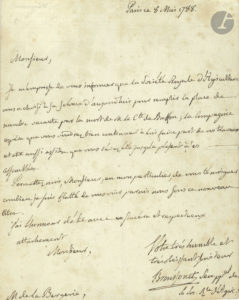 Paris ce 8 Mai 1788.
Monsieur,
Je m'empresse de vous informer que la Société Royale d'Agriculture
vous a élu à sa séance d'aujourd'hui pour remplir la place de
membre vacante par la mort de M. le Cte de Buffon, la compagnie
espère que vous voudrez bien continuer à lui faire part de vos
et être aussi assidu que vous
assemblées.
Permettez moi, Monsieur, en mon particulier, de vous témoigner
combien je suis flatté de vous voir parmi nous sous ce nouveau
titre.
J'ai l'honneur d'être avec un sincère et respectueux
attachement
Monsieur,
Votre très humble et
très obéissant serviteur
Broussonet, Secr. ppl. de
la Soc. R. d'Agric.
M. de la Bergerie